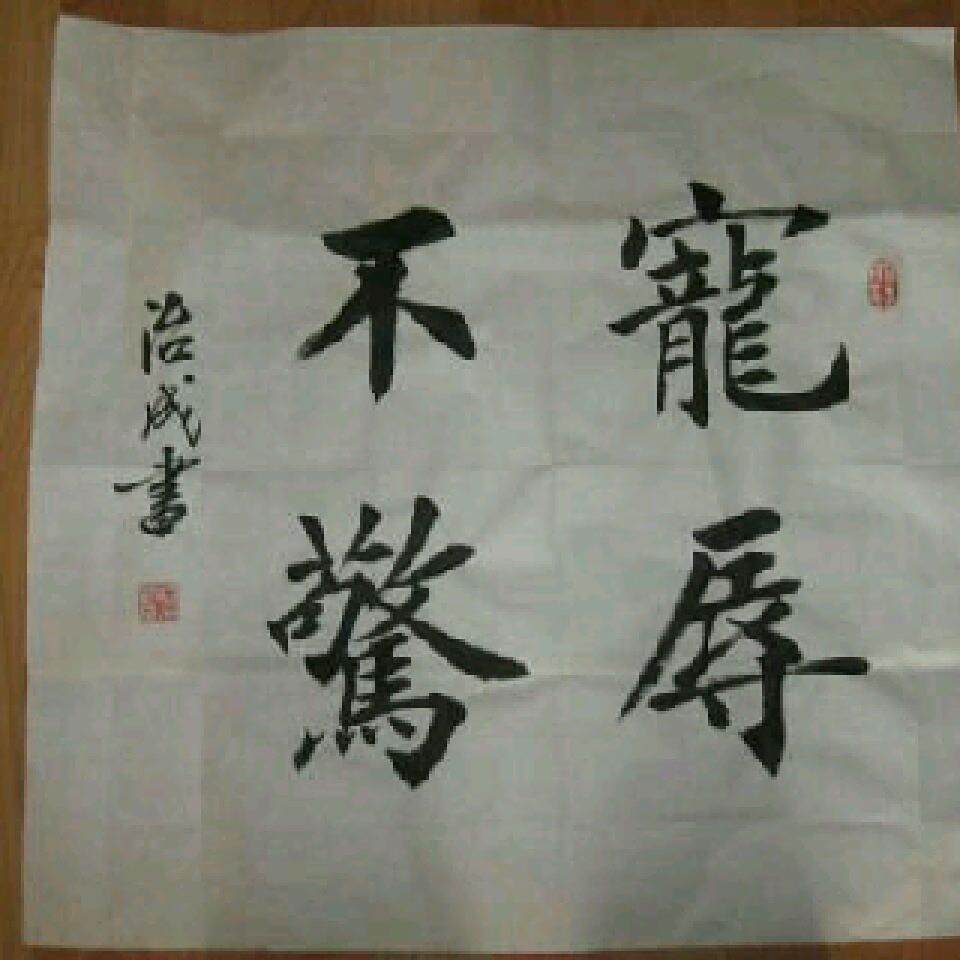 寵辱
不驚
治成書